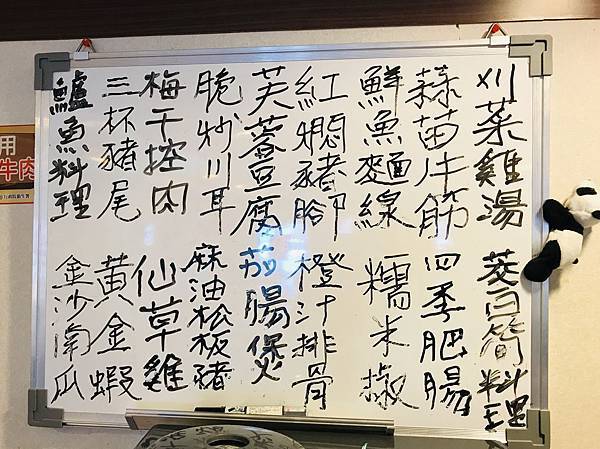 刈菜雞湯 茭白筍料理
蒜苗牛筋 四季肥腸
鮮魚麵線 糯米椒
紅燜豬脚 橙汁排骨
芙蓉豆腐 茄腸煲
脆炒川耳 麻油松板豬
梅干控肉 仙草雞
三杯豬尾 黃金蝦
鱸魚料理 金沙南瓜
用
牛肉